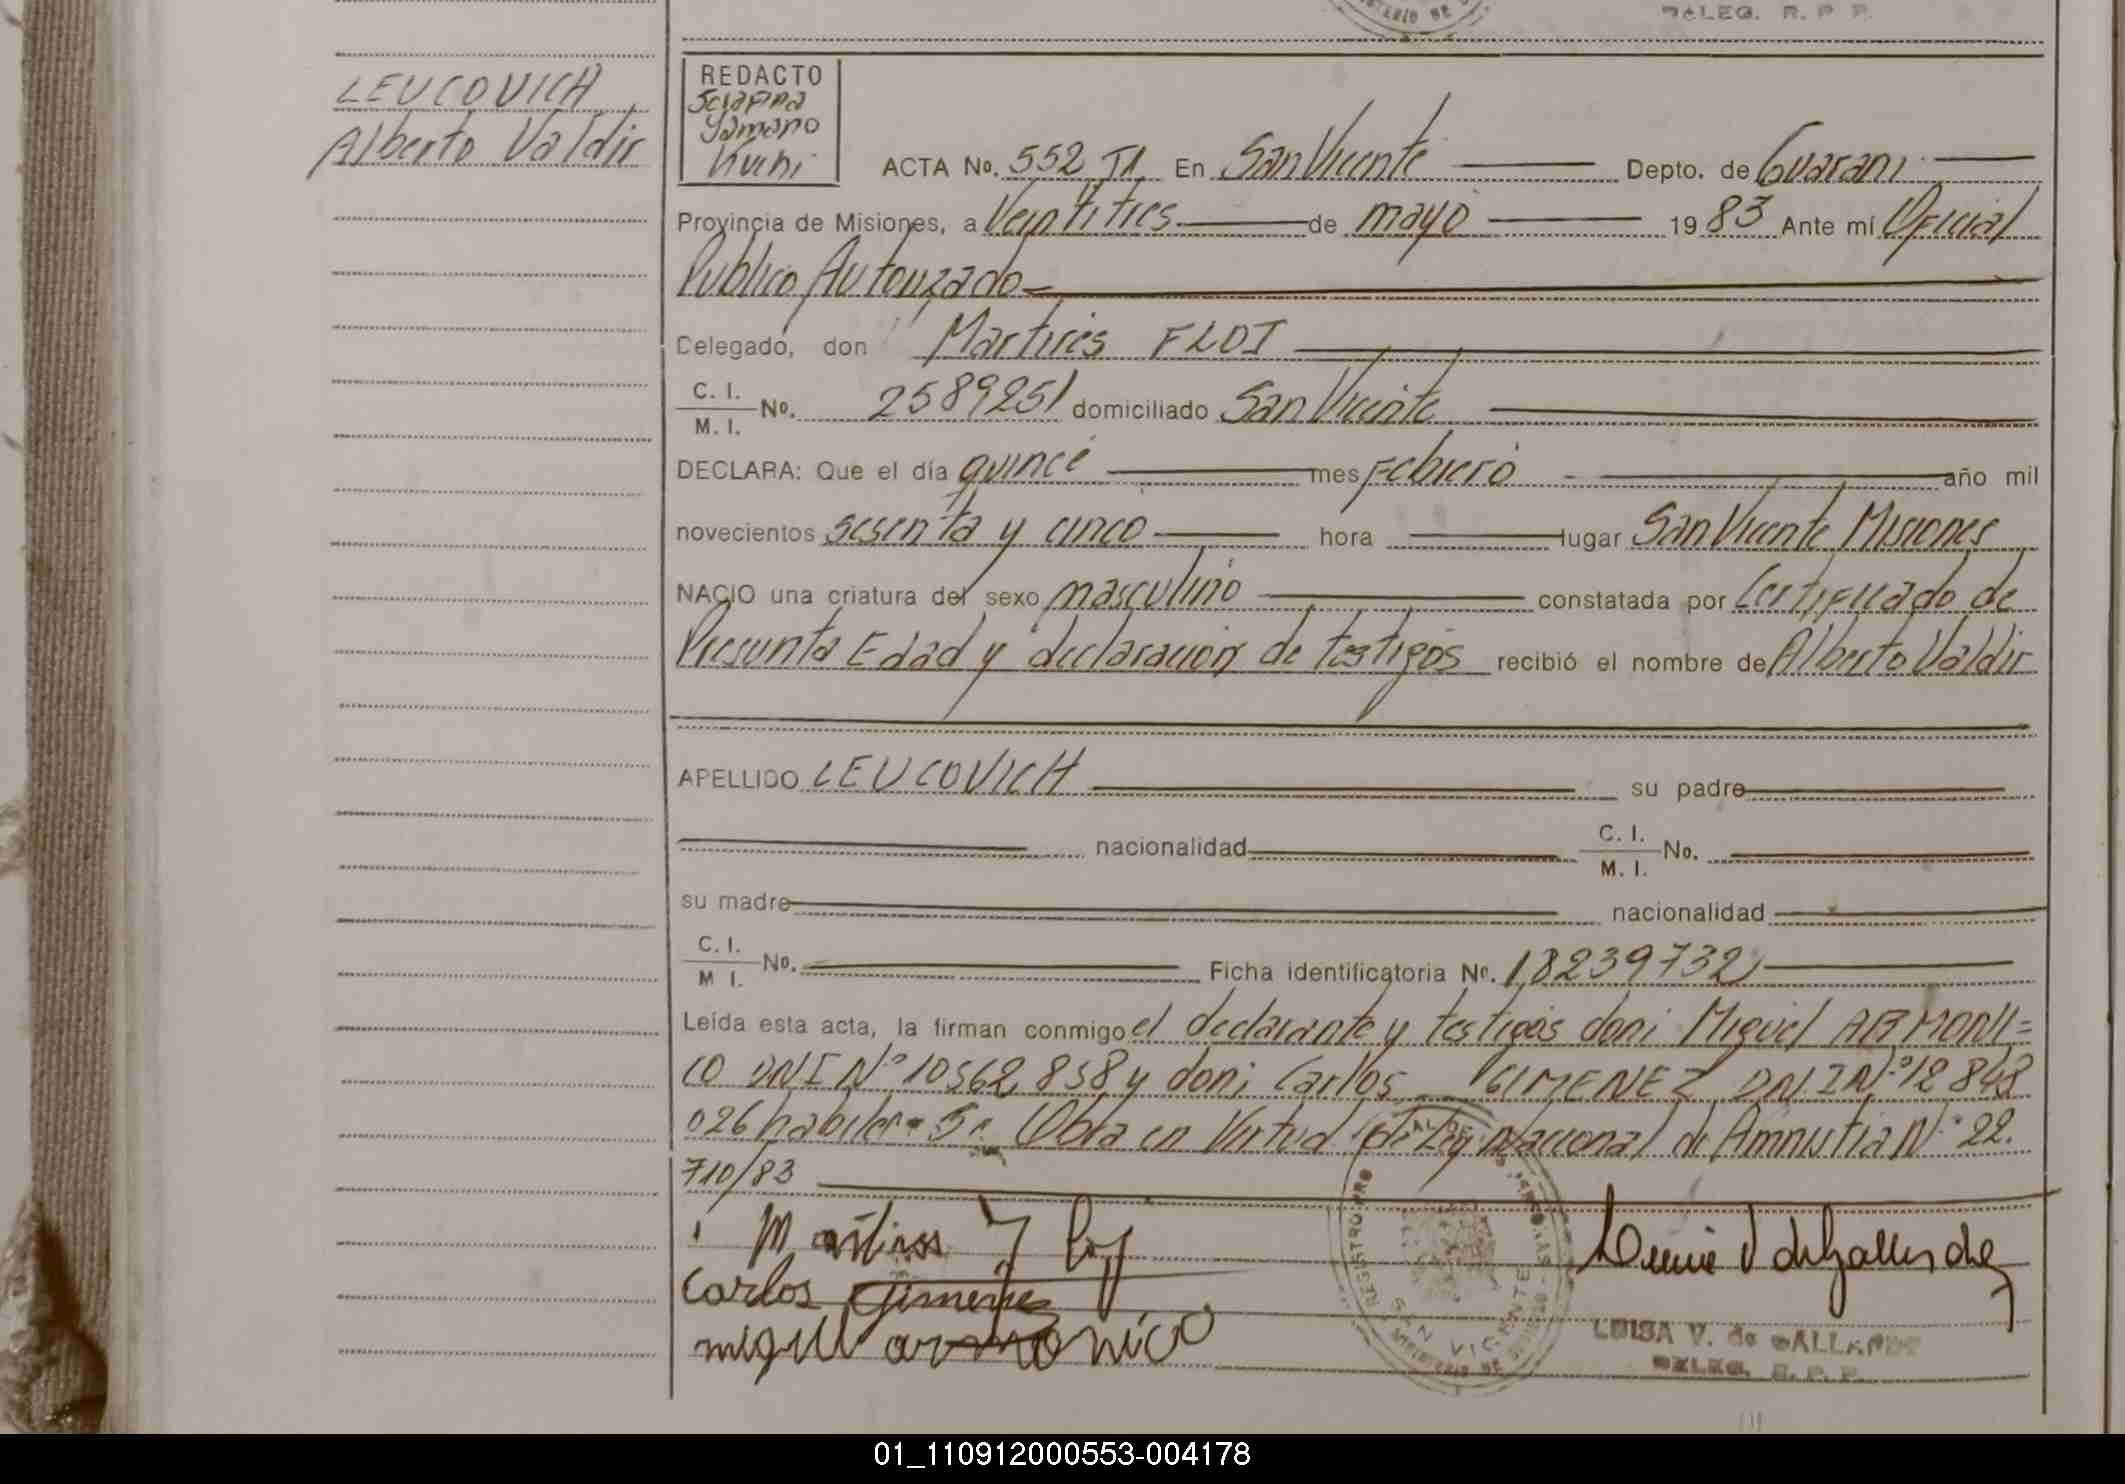 DELEG. R. P. P.
LEUCOVICH
Alberto Valdir
REDACTO
Yamano
Kuchi
ACTA No. 552 En San Vicente Depto. de Guarani
Provincia de Misiones, a Veintitres de mayo 1983 Ante mí Oficial
Publico Autorizado
Celegado, don Martires FLOI
C. I.
M. I. No. 2589251 domiciliado San Vicente
DECLARA: Que el día quince mes Febrero año mil
novecientos sesenta y cinco hora lugar San Vicente Misiones
NACIO una criatura del sexo masculino constatada por Certificado de
Presunta Edad y declaracion de testigos recibió el nombre de Alberto Valdir
APELLIDO LEUCOVICH su padre
nacionalidad C. I.
M. I. No.
su madre nacionalidad
C. I.
M I. No. Ficha identificatoria No. 18239732
Leída esta acta, la firman conmigo el declarante y testigos don: Miguel ARMONI=
CO DNI Nº 10562.858 y don: Carlos GIMENEZ DNI Nº 12848
026 habiles Obra en Virtud de Ley Nacional de Amnistia Nº 22.
710/83
Carlos Gimenez
miguel armonico
REGISTRO PRO
SAN VICENTE
LUISA V. de GALLARDO
DELEG. R. P. P.
01_110912000553-004178